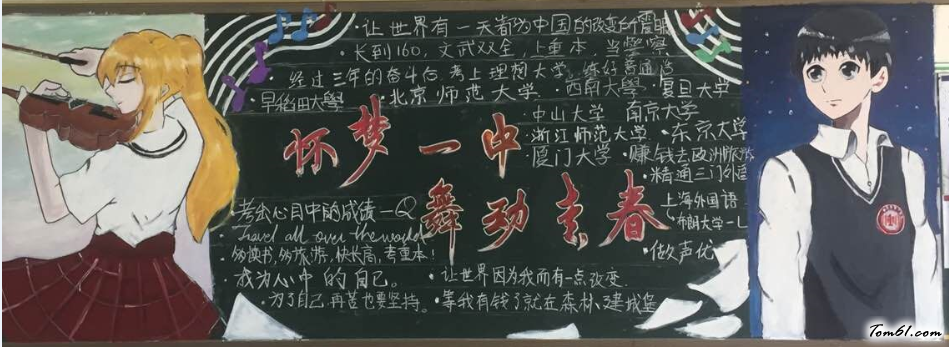 ·让世界有一天都为中国的改变而震眼
·长到160,文武双全 上重本 当
·经过三年的奋斗后 考上理想大学。练好普通话
·早稻田大學 ·北京师范大学 ·西南大學 ·复旦大学
中山大学 南京大学
·浙江师范大学 ·东京大学
·厦门大学 ·赚钱去欧洲旅游
·精通三门外语
怀梦一中
舞动青春
上海外国语
·布朗大学-L
·做声优
·考出心目中的成绩-Q
Travel all over the world
多读书,多旅游,快长高,考重本!
·成为心中的自己。
·让世界因为我而有一点改变.
·为了自己再苦也要坚持。
·等我有钱了就在森林建城堡
Tom61.com